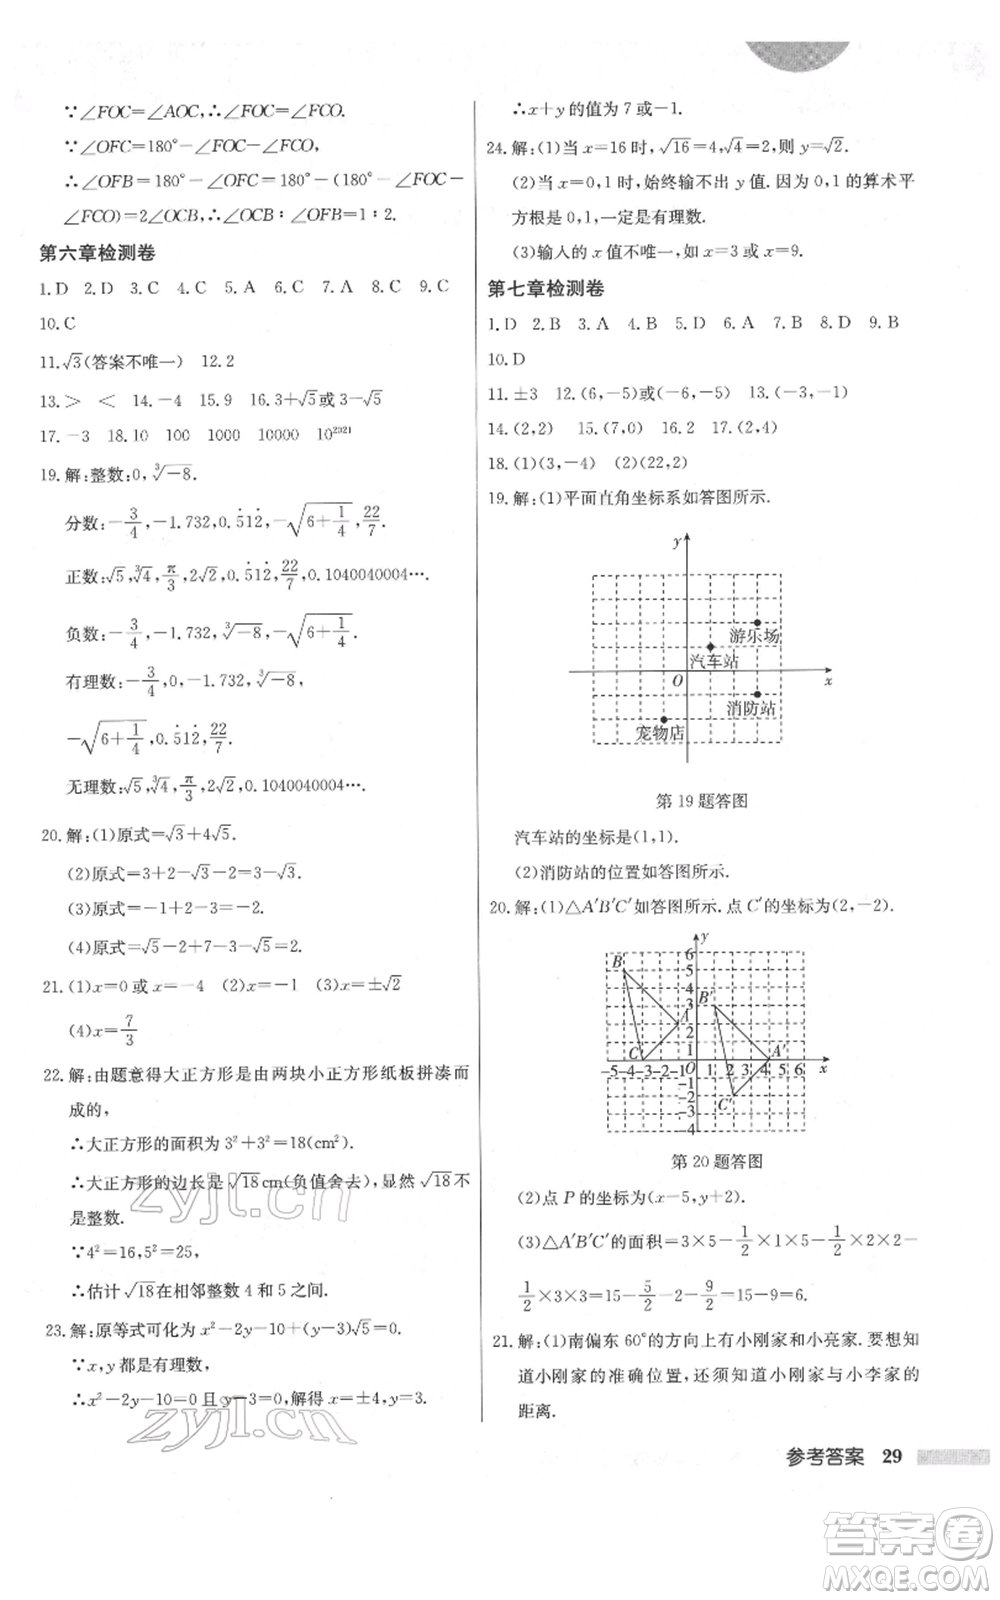 ∵∠FOC=∠AOC,∴∠FOC=∠FCO.
∵∠OFC=180°-∠FOC-∠FCO,
∴∠OFB=180°-∠OFC=180°-(180°-∠FOC-
∠FCO)=2∠OCB,∴∠OCB∶∠OFB=1∶2.
第六章检测卷
1.D 2.D 3.C 4.C 5.A 6.C 7.A 8.C 9.C
10.C
11.√3(答案不唯一) 12.2
13.> < 14.-4 15.9 16.3+√5或3-√5
17.-3 18.10 100 1000 10000 10²⁰²¹
19.解:整数:0,∛-8.
分数:-3/4,-1.732,0.5̇12̇,-√(6+1/4),22/7.
正数:√5,∛4,π/3,2√2,0.5̇12̇,22/7,0.1040040004⋯.
负数:-3/4,-1.732,∛-8,-√(6+1/4).
有理数:-3/4,0,-1.732,∛-8,
-√(6+1/4),0.5̇12̇,22/7.
无理数:√5,∛4,π/3,2√2,0.1040040004⋯.
20.解:(1)原式=√3+4√5.
(2)原式=3+2-√3-2=3-√3.
(3)原式=-1+2-3=-2.
(4)原式=√5-2+7-3-√5=2.
21.(1)x=0或x=-4 (2)x=-1 (3)x=±√2
(4)x=7/3
22.解:由题意得大正方形是由两块小正方形纸板拼凑而
成的,
∴大正方形的面积为3²+3²=18(cm²).
∴大正方形的边长是√18cm(负值舍去),显然√18不
是整数.
∵4²=16,5²=25,
∴估计√18在相邻整数4和5之间.
23.解:原等式可化为x²-2y-10+(y-3)√5=0.
∵x,y都是有理数,
∴x²-2y-10=0且y-3=0,解得x=±4,y=3.
∴x+y的值为7或-1.
24.解:(1)当x=16时,√16=4,√4=2,则y=√2.
(2)当x=0,1时,始终输不出y值.因为0,1的算术平
方根是0,1,一定是有理数.
(3)输入的x值不唯一,如x=3或x=9.
第七章检测卷
1.D 2.B 3.A 4.B 5.D 6.B 7.A 8.D 9.B
10.D
11.±3 12.(6,-5)或(-6,-5) 13.(-3,-1)
14.(2,2) 15.(7,0) 16.2 17.(2,4)
18.(1)(3,-4) (2)(22,2)
19.解:(1)平面直角坐标系如答图所示.
y
游乐场
汽车站
O x
消防站
宠物店
第19题答图
汽车站的坐标是(1,1).
(2)消防站的位置如答图所示.
20.解:(1)△A′B′C′如答图所示.点C′的坐标为(2,-2).
y
6
B 5
4
B′ 3
A 2
C 1 A′
-5-4-3-2-1 O 1 2 3 4 5 6 x
-1
C′ -2
-3
-4
第20题答图
(2)点P的坐标为(x-5,y+2).
(3)△A′B′C′的面积=3×5-1/2×1×5-1/2×2×2-
1/2×3×3=15-5/2-2-9/2=15-9=6.
21.解:(1)南偏东60°的方向上有小刚家和小亮家.要想知
道小刚家的准确位置,还须知道小刚家与小李家的
距离.
参考答案 29
zyjl.cn
zyjl.cn
答案卷
MXQE.COM